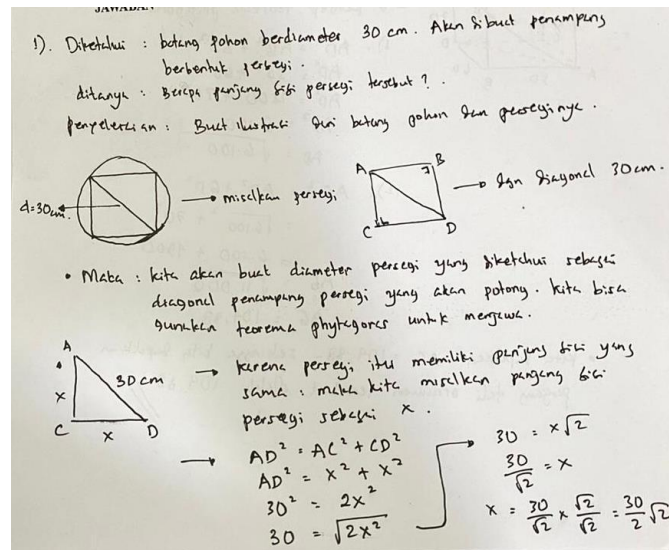 JAWABAN
1). Diketahui : batang pohon berdiameter 30 cm. Akan dibuat penampang
berbentuk persegi.
ditanya : Berapa panjang sisi persegi tersebut ?.
penyelesaian : Buat ilustrasi dari batang pohon dan perseginya.
d=30cm.
→ misalkan persegi
A
B
C
D
→ dgn diagonal 30cm.
• Maka : kita akan buat diameter persegi yang diketahui sebagai
diagonal penampang persegi yang akan potong. kita bisa
gunakan teorema phytagoras untuk menjawa.
A
30 cm
x
C
x
D
→ karena persegi itu memiliki panjang sisi yang
sama : maka kita misalkan panjang sisi
persegi sebagai x.
→ AD² = AC² + CD²
AD² = x² + x²
30² = 2x²
30 = √2x²
→ 30 = x√2
30/√2 = x
x = 30/√2 × √2/√2 = 30/2 √2